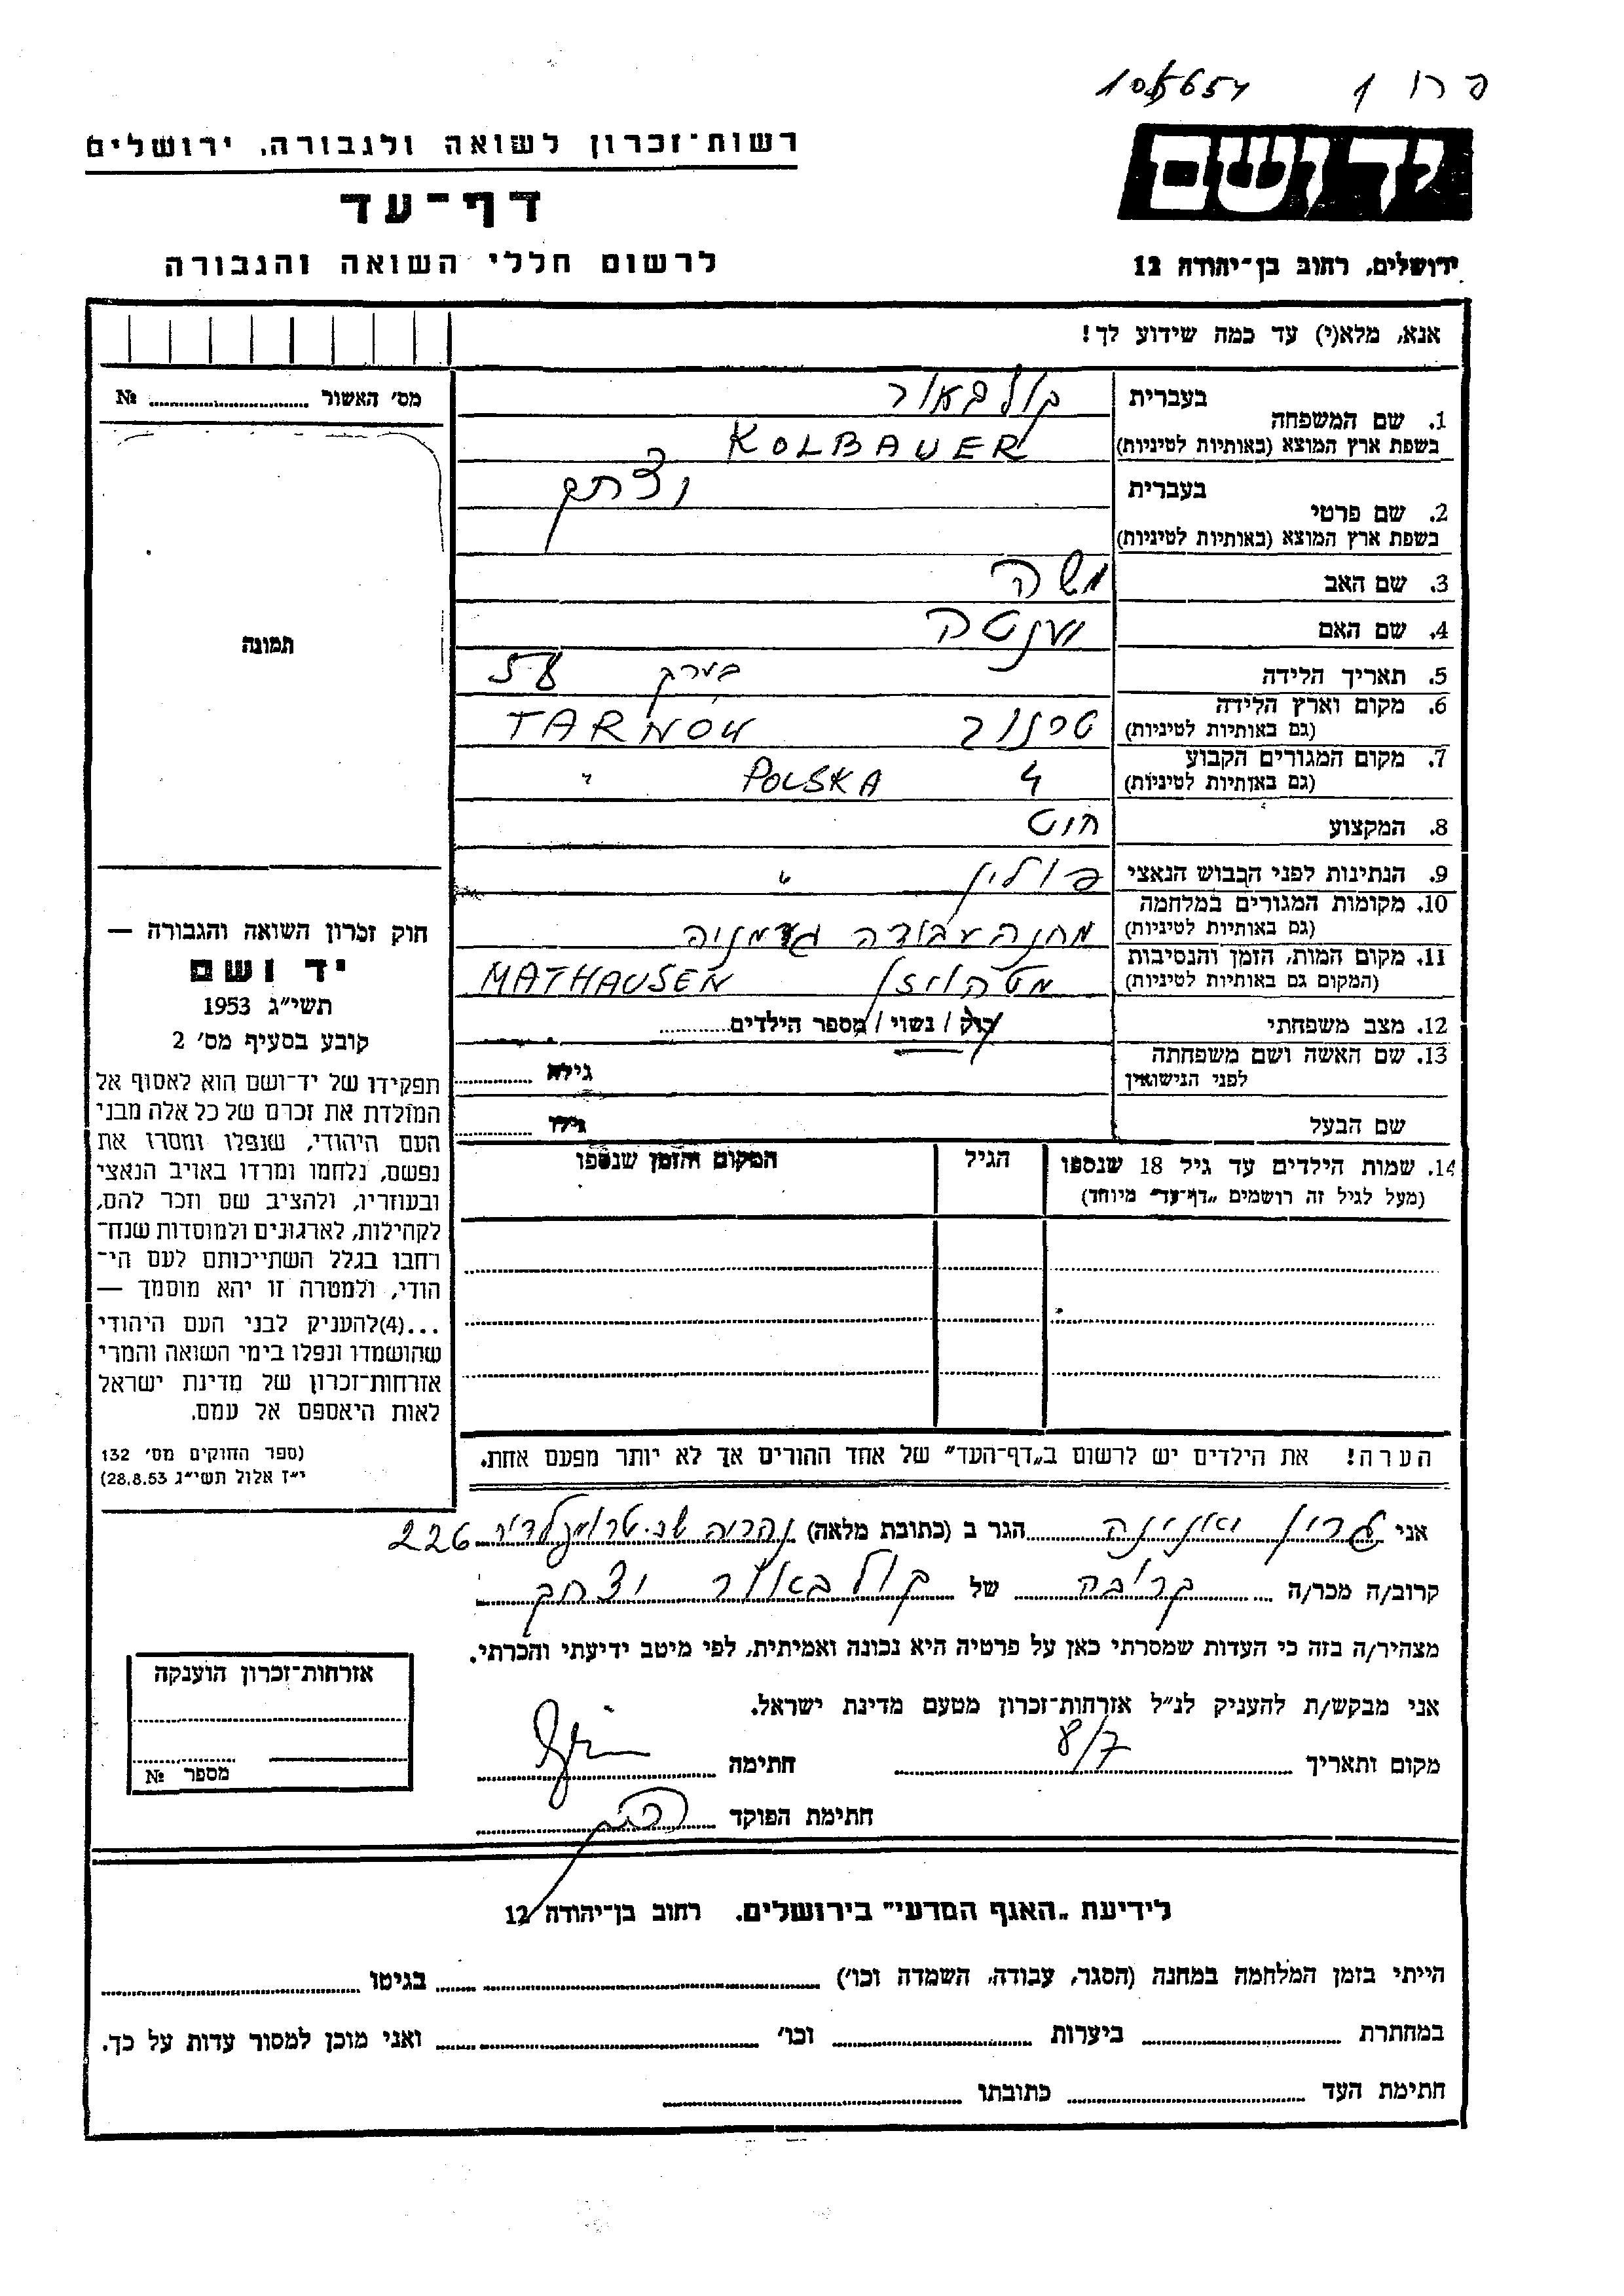 105654
רשות־זכרון לשואה ולגבורה, ירושלים
יד ושם
דף־עד
לרשום חללי השואה והגבורה
ירושלים, רחוב בן־יהודה 12
אנא, מלא(י) עד כמה שידוע לך!
מס׳ האשור № 
1. שם המשפחה בעברית קולבאור
בשפת ארץ המוצא (באותיות לטיניות) KOLBAUER
2. שם פרטי בעברית יצחק
בשפת ארץ המוצא (באותיות לטיניות)
3. שם האב משה
4. שם האם
5. תאריך הלידה בערך 58
6. מקום וארץ הלידה (גם באותיות לטיניות) טרנוב TARNOW
7. מקום המגורים הקבוע (גם באותיות לטיניות) POLSKA "
8. המקצוע
9. הנתינות לפני הכבוש הנאצי פולין "
10. מקומות המגורים במלחמה (גם באותיות לטיניות) מחנה עבודה גרמניה
11. מקום המות, הזמן והנסיבות (המקום גם באותיות לטיניות) מטהוזן MATHAUSEN
12. מצב משפחתי רוק / נשוי / מספר הילדים
13. שם האשה ושם משפחתה לפני הנישואין גילה
שם הבעל גילו
14. שמות הילדים עד גיל 18 שנספו
(מעל לגיל זה רושמים „דף־עד” מיוחד)
הגיל
המקום והזמן שנספו
תמונה
חוק זכרון השואה והגבורה —
יד ושם
תשי״ג 1953
קובע בסעיף מס׳ 2
תפקידו של יד־ושם הוא לאסוף אל
המולדת את זכרם של כל אלה מבני
העם היהודי, שנפלו ומסרו את
נפשם, נלחמו ומרדו באויב הנאצי
ובעוזריו, ולהציב שם וזכר להם,
לקהילות, לארגונים ולמוסדות שנח־
רחבו בגלל השתייכותם לעם הי־
הודי, ולמטרה זו יהא מוסמך —
...(4)להעניק לבני העם היהודי
שהושמדו ונפלו בימי השואה והמרי
אזרחות־זכרון של מדינת ישראל
לאות היאספם אל עמם.
(ספר החוקים מס׳ 132
י״ז אלול תשי״ג 28.8.53)
הערה! את הילדים יש לרשום ב„דף־העד” של אחד ההורים אך לא יותר מפעם אחת.
אני הגר ב (כתובת מלאה) נהריה 226
קרוב/ה מכר/ה קרובה של קולבאור יצחק
מצהיר/ה בזה כי העדות שמסרתי כאן על פרטיה היא נכונה ואמיתית, לפי מיטב ידיעתי והכרתי.
אני מבקש/ת להעניק לנ״ל אזרחות־זכרון מטעם מדינת ישראל.
מקום ותאריך 8/7 חתימה
חתימת הפוקד
אזרחות־זכרון הוענקה
מספר №
לידיעת „האגף המדעי” בירושלים. רחוב בן־יהודה 12
הייתי בזמן המלחמה במחנה (הסגר, עבודה, השמדה וכו׳) בגיטו
במחתרת ביערות וכו׳ ואני מוכן למסור עדות על כך.
חתימת העד כתובתו